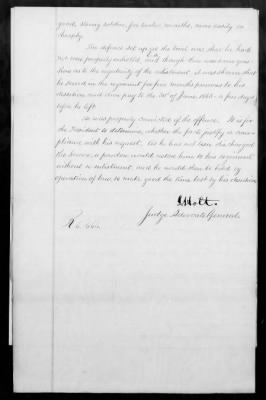 good, strong soldier, for twelve months, more easily or
cheaply.
The defence set up at the trial was that he had
not been properly enlisted, and though there was some ques-
tion as to the regularity of the enlistment, it was shown that
he served in the regiment for five months previous to his
desertion and drew pay to the 30th of June, 1863 - a few days
before he left.
He was properly convicted of the offence. It is for
the President to determine, whether the facts justify a com-
pliance with his request. As he has not been discharged
the service, a pardon would restore him to his regiment
without re-enlistment, and he would then be held by
operation of law, to make good the time lost by his desertion.
J. Holt.
Judge Advocate General.